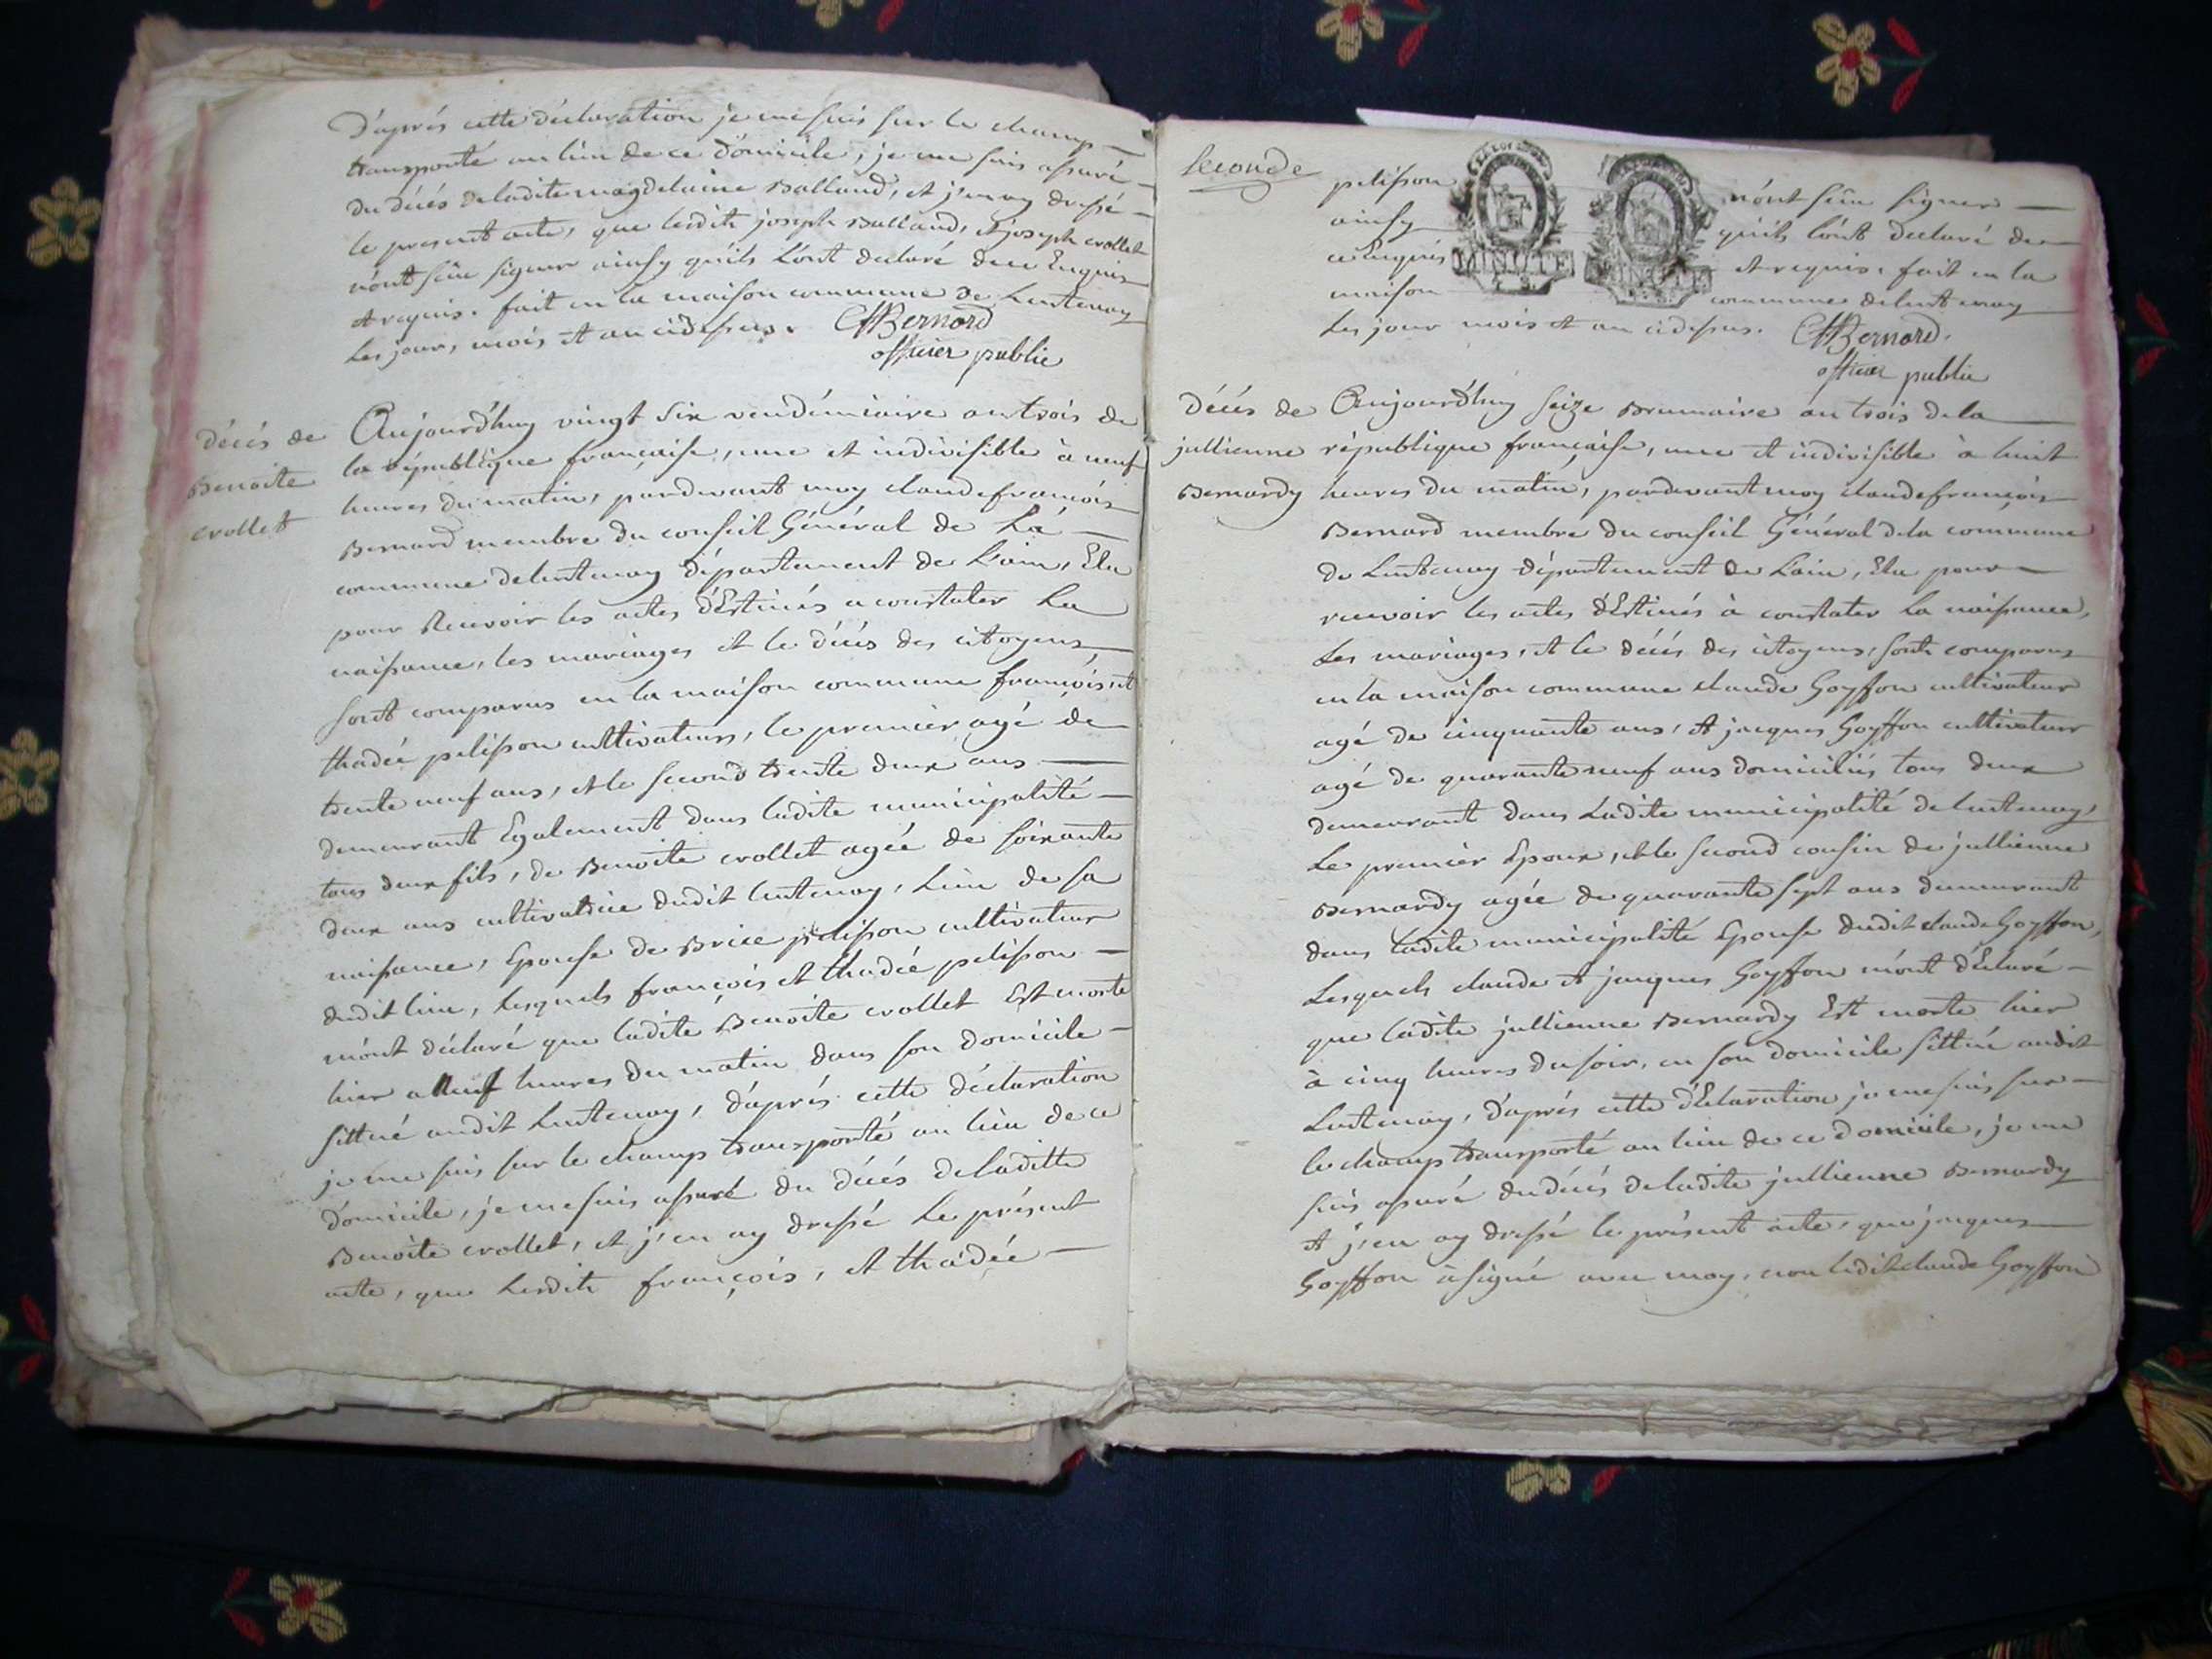 D'aprés cette déclaration je me suis sur le champ
transporté au lieu de ce domicile, je me suis assuré
du décés deladite magdelaine Balland, et j'en ay dressé
le present acte, que lesdits joseph Balland, et joseph crollet
n'ont sçûe signer ainsy qu'ils l'ont declaré de ce Enquis
et requis. fait en la maison commune de Lentenay
Les jour, mois et an cidessus. CfBernard
officier public
décés de
Benoite
crollet
Aujourd'huy vingt Six vendémiaire an trois de
la république française, une et indivisible à neuf
heures du matin, pardevant moy claudefrançois
Bernard membre du conseil Général de La
commune delentenay département de L'ain, Elu
pour Recevoir les actes d'Estinés a constater La
naissance, les mariages et le décés des citoyens,
sont comparus en la maison commune françois, et
thadée pelisson cultivateurs, le premier agé de
trente neuf ans, et le second trente deux ans
demeurant Egalement dans ladite municipalité
tous deux fils, de Benoite crollet agée de soixante
deux ans cultivatrice dudit lentenay, Lieu de sa
naissance, Epouse de Brice pelisson cultivateur
dudit lieu, Lesquels françois et thadée pelisson
m'ont déclaré que ladite Benoite crollet Est morte
hier a Neuf heures du matin dans son domicile
sittué audit Lentenay, d'aprés cette déclaration
je me suis sur le champ transporté au lieu de ce
domicile, je me suis assuré du décés deladitte
Benoite crollet, et j'en ay dressé Le présent
acte, que Lesdits françois, et thadée
seconde
pelisson n'ont sçûe signer
ainsy qu'ils l'ont declaré de
ce Enquis et requis. fait en la
maison commune delentenay
Les jour mois et an cidessus. CfBernard.
officier public
MINUTE MINUTE
décés de
jullienne
Bernardy
Aujourd'huy seize Brumaire an trois de la
république française, une et indivisible à huit
heures du matin, pardevant moy claudefrançois
Bernard membre du conseil Général dela commune
de Lentenay département de L'ain, Elu pour
recevoir les actes d'Estinés à constater la naissance,
Les mariages, et le décés des citoyens, sont comparus
en la maison commune claude Goyffon cultivateur
agé de cinquante ans, et jacques Goyffon cultivateur
agé de quarante neuf ans domiciliés tous deux
demeurant dans Ladite municipalité de lentenay,
Le premier Epoux, et le second cousin de jullienne
Bernardy agée de quarante sept ans demeurant
dans ladite municipalité Epouse dudit claude Goyffon,
Lesquels claude et jacques Goyffon m'ont d'Eclaré
que ladite jullienne Bernardy Est morte hier
à cinq heures dusoir, en son domicile sittué audit
Lentenay, d'aprés cette d'Eclaration je me suis sur
le champ transporté au lieu de ce domicile, je me
suis assuré dudécés deladite jullienne Bernardy
et j'en ay dressé le présent acte, que jacques
Goyffon à signé avec moy, non ledit claude Goyffon